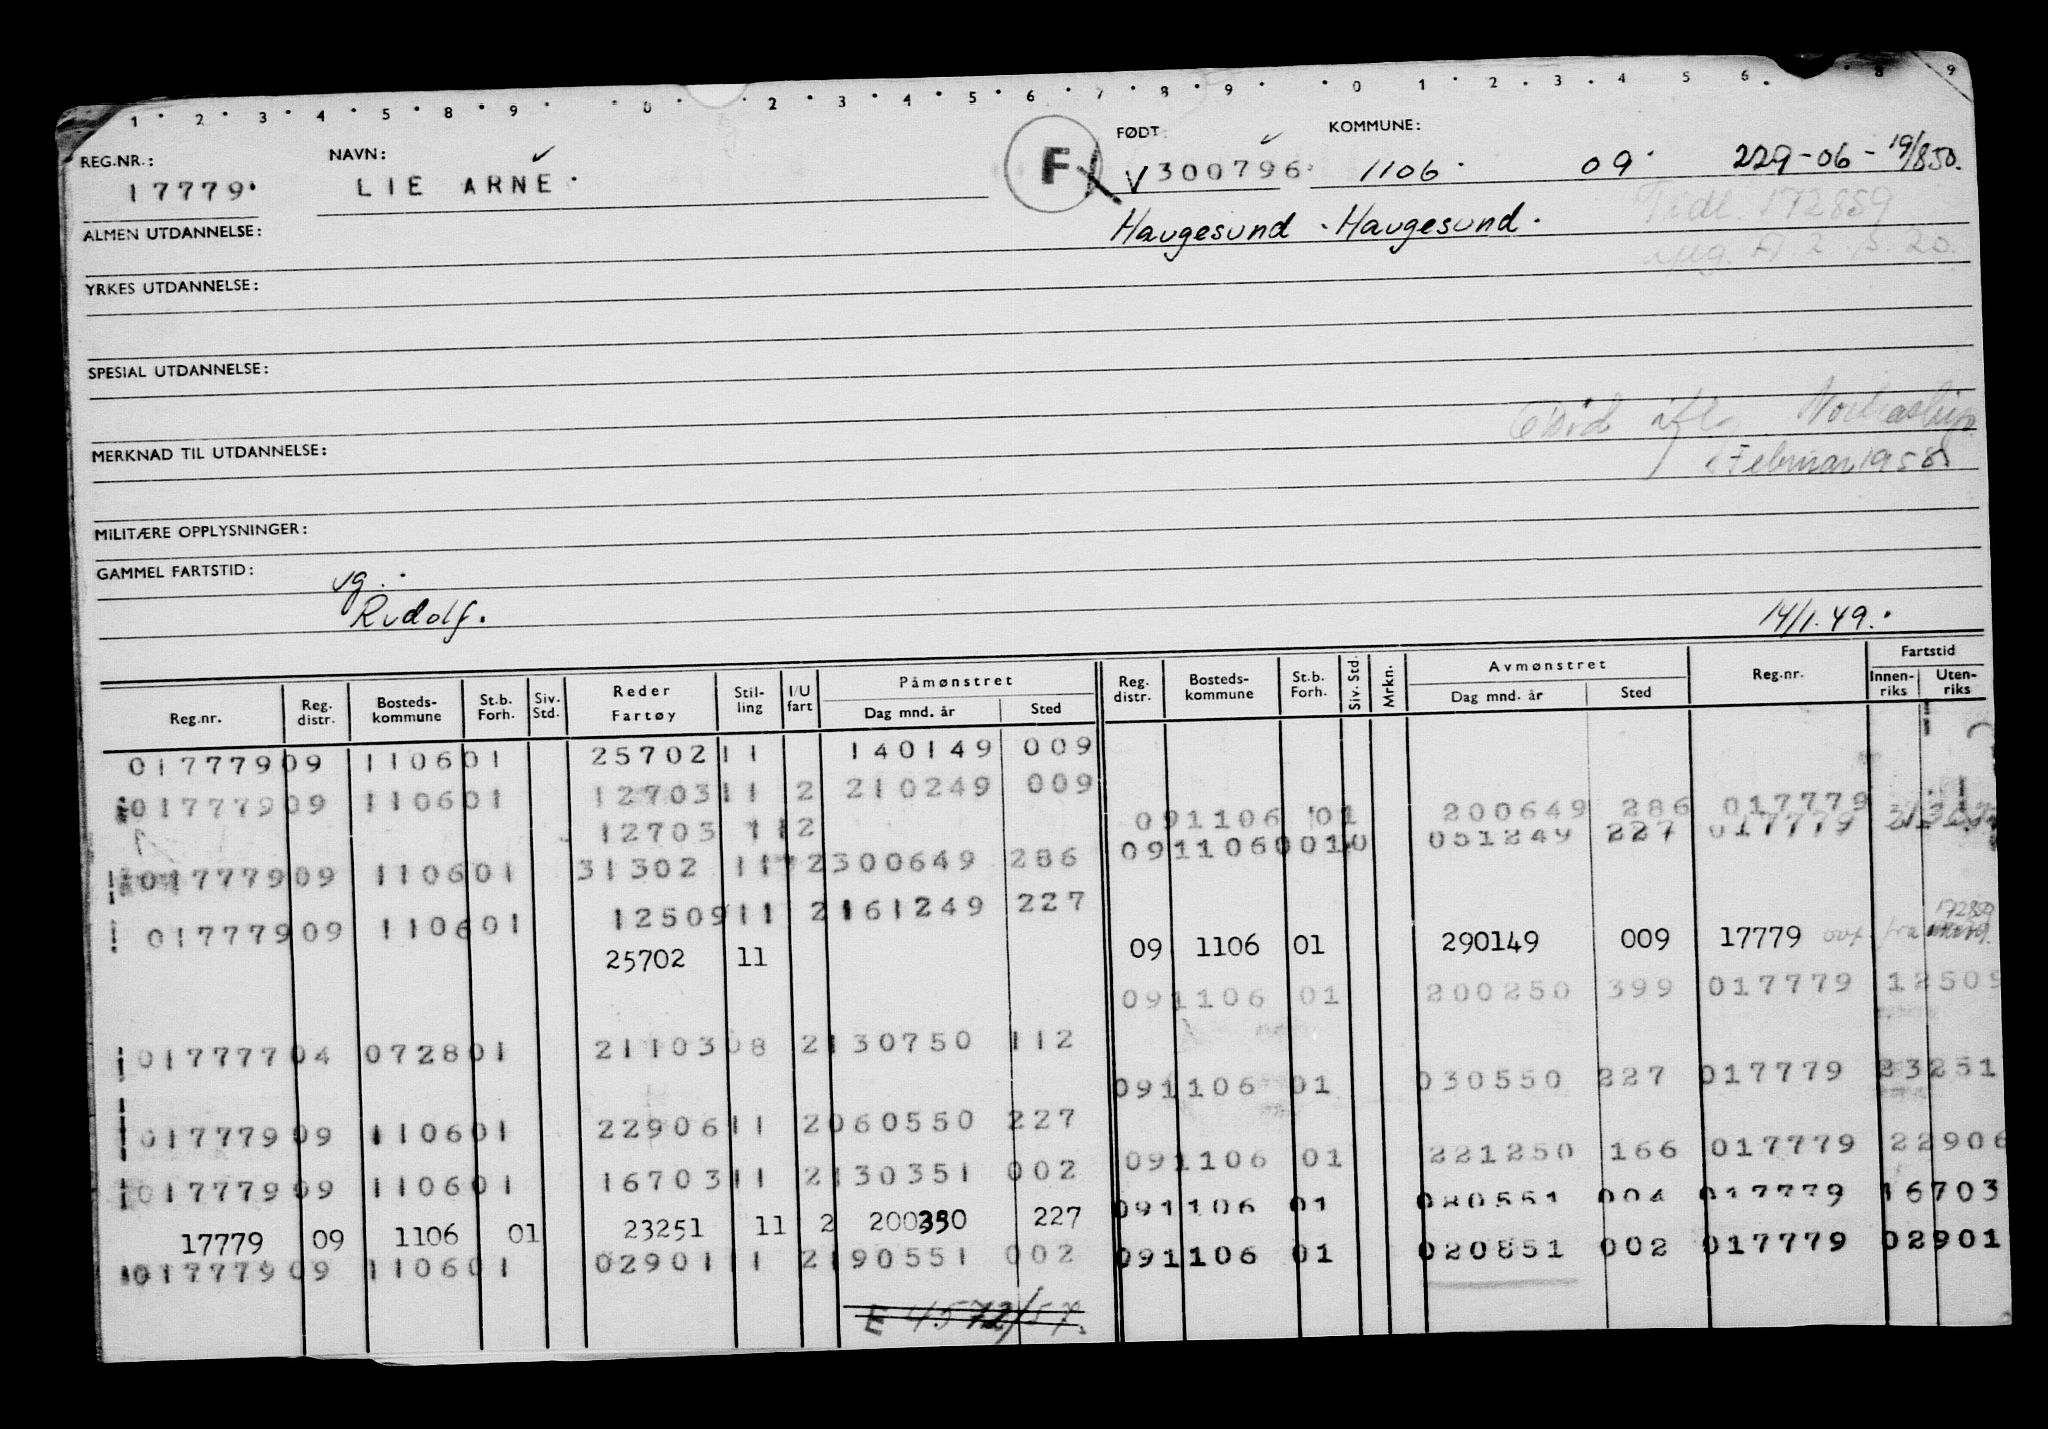 1 2 3 4 5 8 9 0 2 3 4 5 6 7 8 9 0 1 2 3 4 5 6 8 9
REG.NR.: NAVN: FØDT: KOMMUNE:
17779 LIE ARNE F V 300796 1106 09 229-06-19/8 50.
Haugesund Haugesund Tidl. 172859
ALMEN UTDANNELSE:
YRKES UTDANNELSE:
SPESIAL UTDANNELSE:
Død Nortraship
MERKNAD TIL UTDANNELSE: Februar 1958
MILITÆRE OPPLYSNINGER:
GAMMEL FARTSTID:
vg.
Rudolf. 14/1.49.
Reg.nr. Reg. distr. Bosteds-kommune St.b. Forh. Siv. Std. Reder Fartøy Stil-ling I/U fart Påmønstret Dag mnd. år Sted Reg. distr. Bosteds-kommune St.b. Forh. Siv. Std. Mrkn. Avmønstret Dag mnd. år Sted Reg.nr. Fartstid Innen-riks Uten-riks
017779 09 1106 01 25702 11 140149 009
017779 09 1106 01 12703 11 2 210249 009
09 1106 01 200649 286 017779
12703 11 2
09 1106 051249 227 017779
017779 09 1106 01 31302 11 2 300649 286
017779 09 1106 01 12509 11 2 161249 227
25702 11 09 1106 01 290149 009 17779 ovf fra 172859
09 1106 01 200250 399 017779 12509
017777 04 0728 01 21103 08 2 130750 112
09 1106 01 030550 227 017779 23251
017779 09 1106 01 22906 11 2 060550 227
09 1106 01 221250 166 017779 22906
017779 09 1106 01 16703 11 2 130351 002
09 1106 01 080551 004 017779 16703
17779 09 1106 01 23251 11 2 200350 227
017779 09 1106 01 02901 11 2 190551 002 09 1106 01 020851 002 017779 02901
E 4572/57.